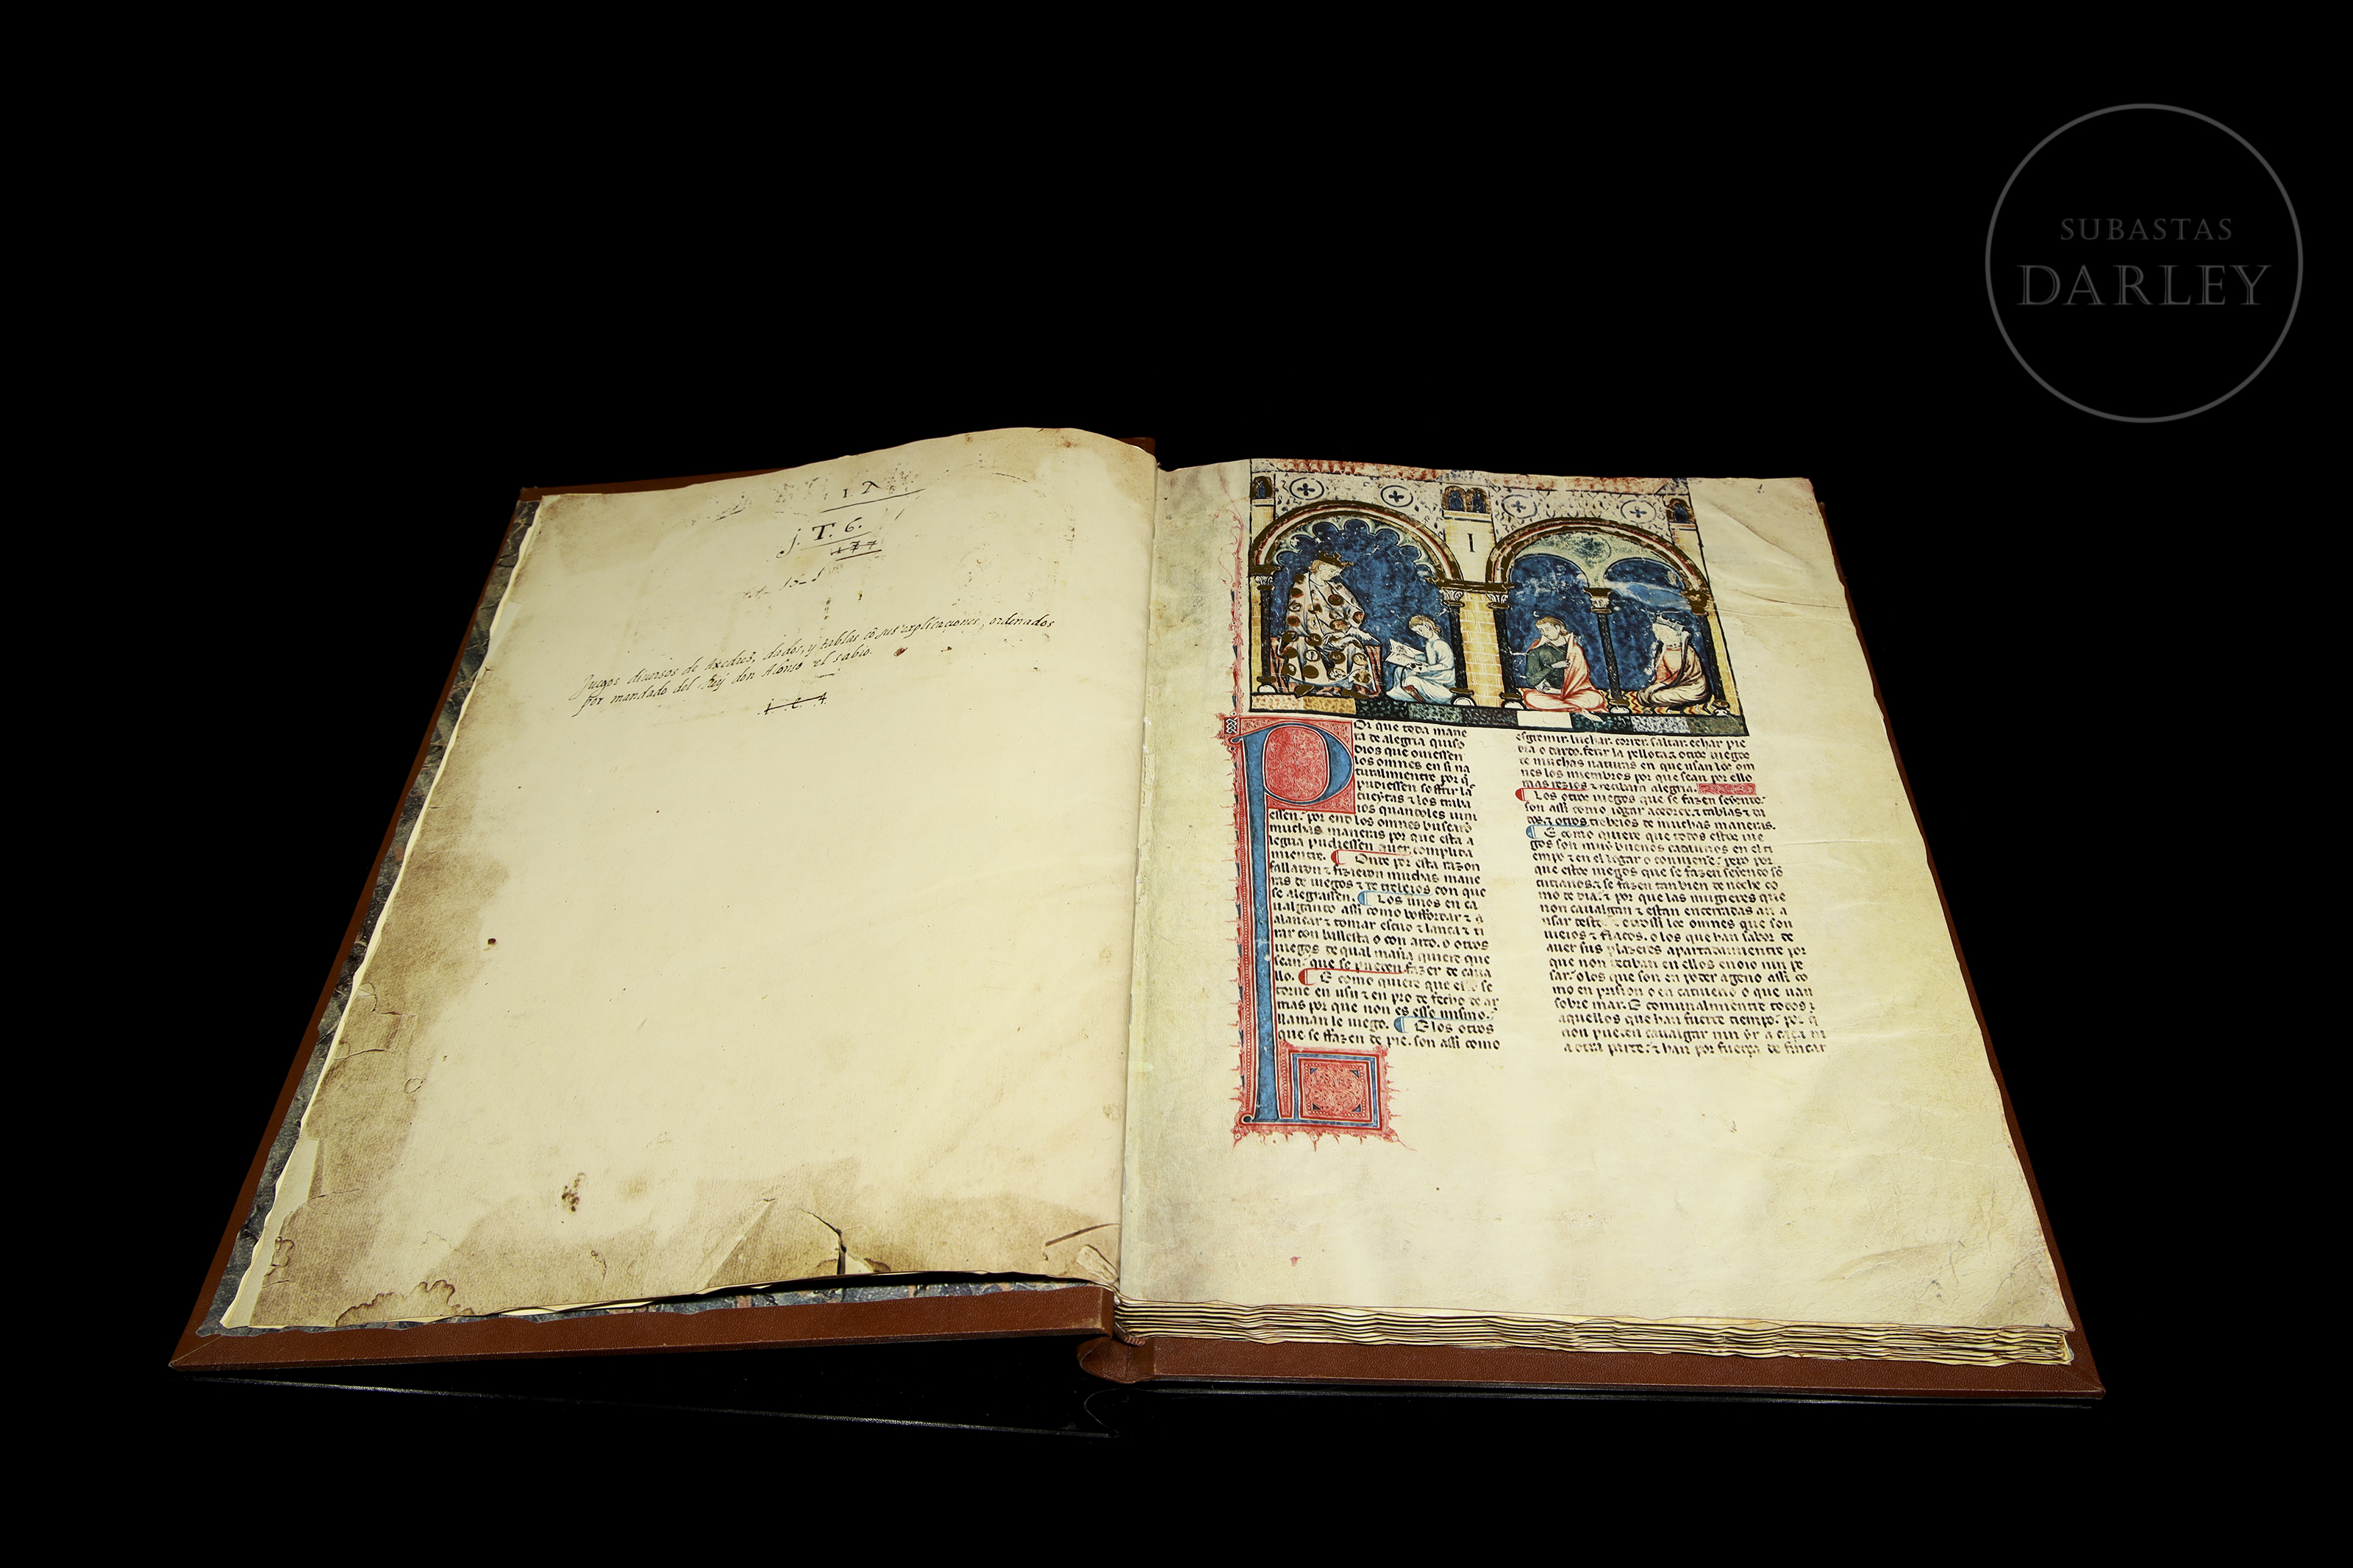 SUBASTAS
DARLEY
j. T. 6.
Juegos diversos de Axedrez, dados, y tablas cõ sus explicaciones, ordenados
por mandado del Rey don Alonso el sabio.
I
POr que toda mane
ra de alegria quiso
dios que ouiessen
los omnes en si na
turalmientre por q̃
pudiessen soffrir las
cueytas ⁊ los traba
ios quandoles uini
essen. por end los omnes buscarõ
muchas maneras por que esta a
legria pudiessen auer complida
mientre. Onde por esta razon
fallaron ⁊ fizieron muchas mane
ras de iuegos ⁊ de trebeios con que
se alegrassen. Los unos en ca
ualgando assi como bofordar ⁊ a
alançar ⁊ tomar escudo ⁊ lança ⁊ ti
rar con ballesta o con arco. o otros
iuegos de qual maña quiere que
sean. que se pueden fazer de caua
llo. E como quiere que ello se
torne en usu ⁊ en pro de fecho de ar
mas por que non es esso mismo.
llaman le iuego. E los otros
que se ffazen de pie. son assi como
esgremir. luchar. correr. saltar. echar pie
dra o dardo. ferir la pellota ⁊ otros iuegos
de muchas naturas en que usan los om
nes los miembros por que sean por ello
mas rezios ⁊ reciban alegria.
Los otros iuegos que se fazen seyendo.
son assi como iogar acedrex ⁊ tablas ⁊ da
dos ⁊ otros trebeios de muchas maneras.
E como quiere que todos estos iue
gos son muy buenos cadaunos en el ti
empo ⁊ en el logar o conuiene. pero por
que estos iuegos que se fazen seyendo sõ
cutianos. ⁊ se fazen tambien de noche co
mo de dia. ⁊ por que las mugieres que
non caualgan ⁊ estan encerradas an a
usar desto. ⁊ otrossi los omnes que son
uieios ⁊ flacos. o los que han sabor de
auer sus plazeres apartadamientre por
que non reciban en ellos enoio nin pe
sar. o los que son en poder ageno assi co
mo en prision o en catiuerio o que uan
sobre mar. E comunalmientre todos
aquellos que han fuerte tiempo. por q̃
non pueden caualgar nin yr a caça ni
a otra parte. ⁊ han por fuerça de fincar